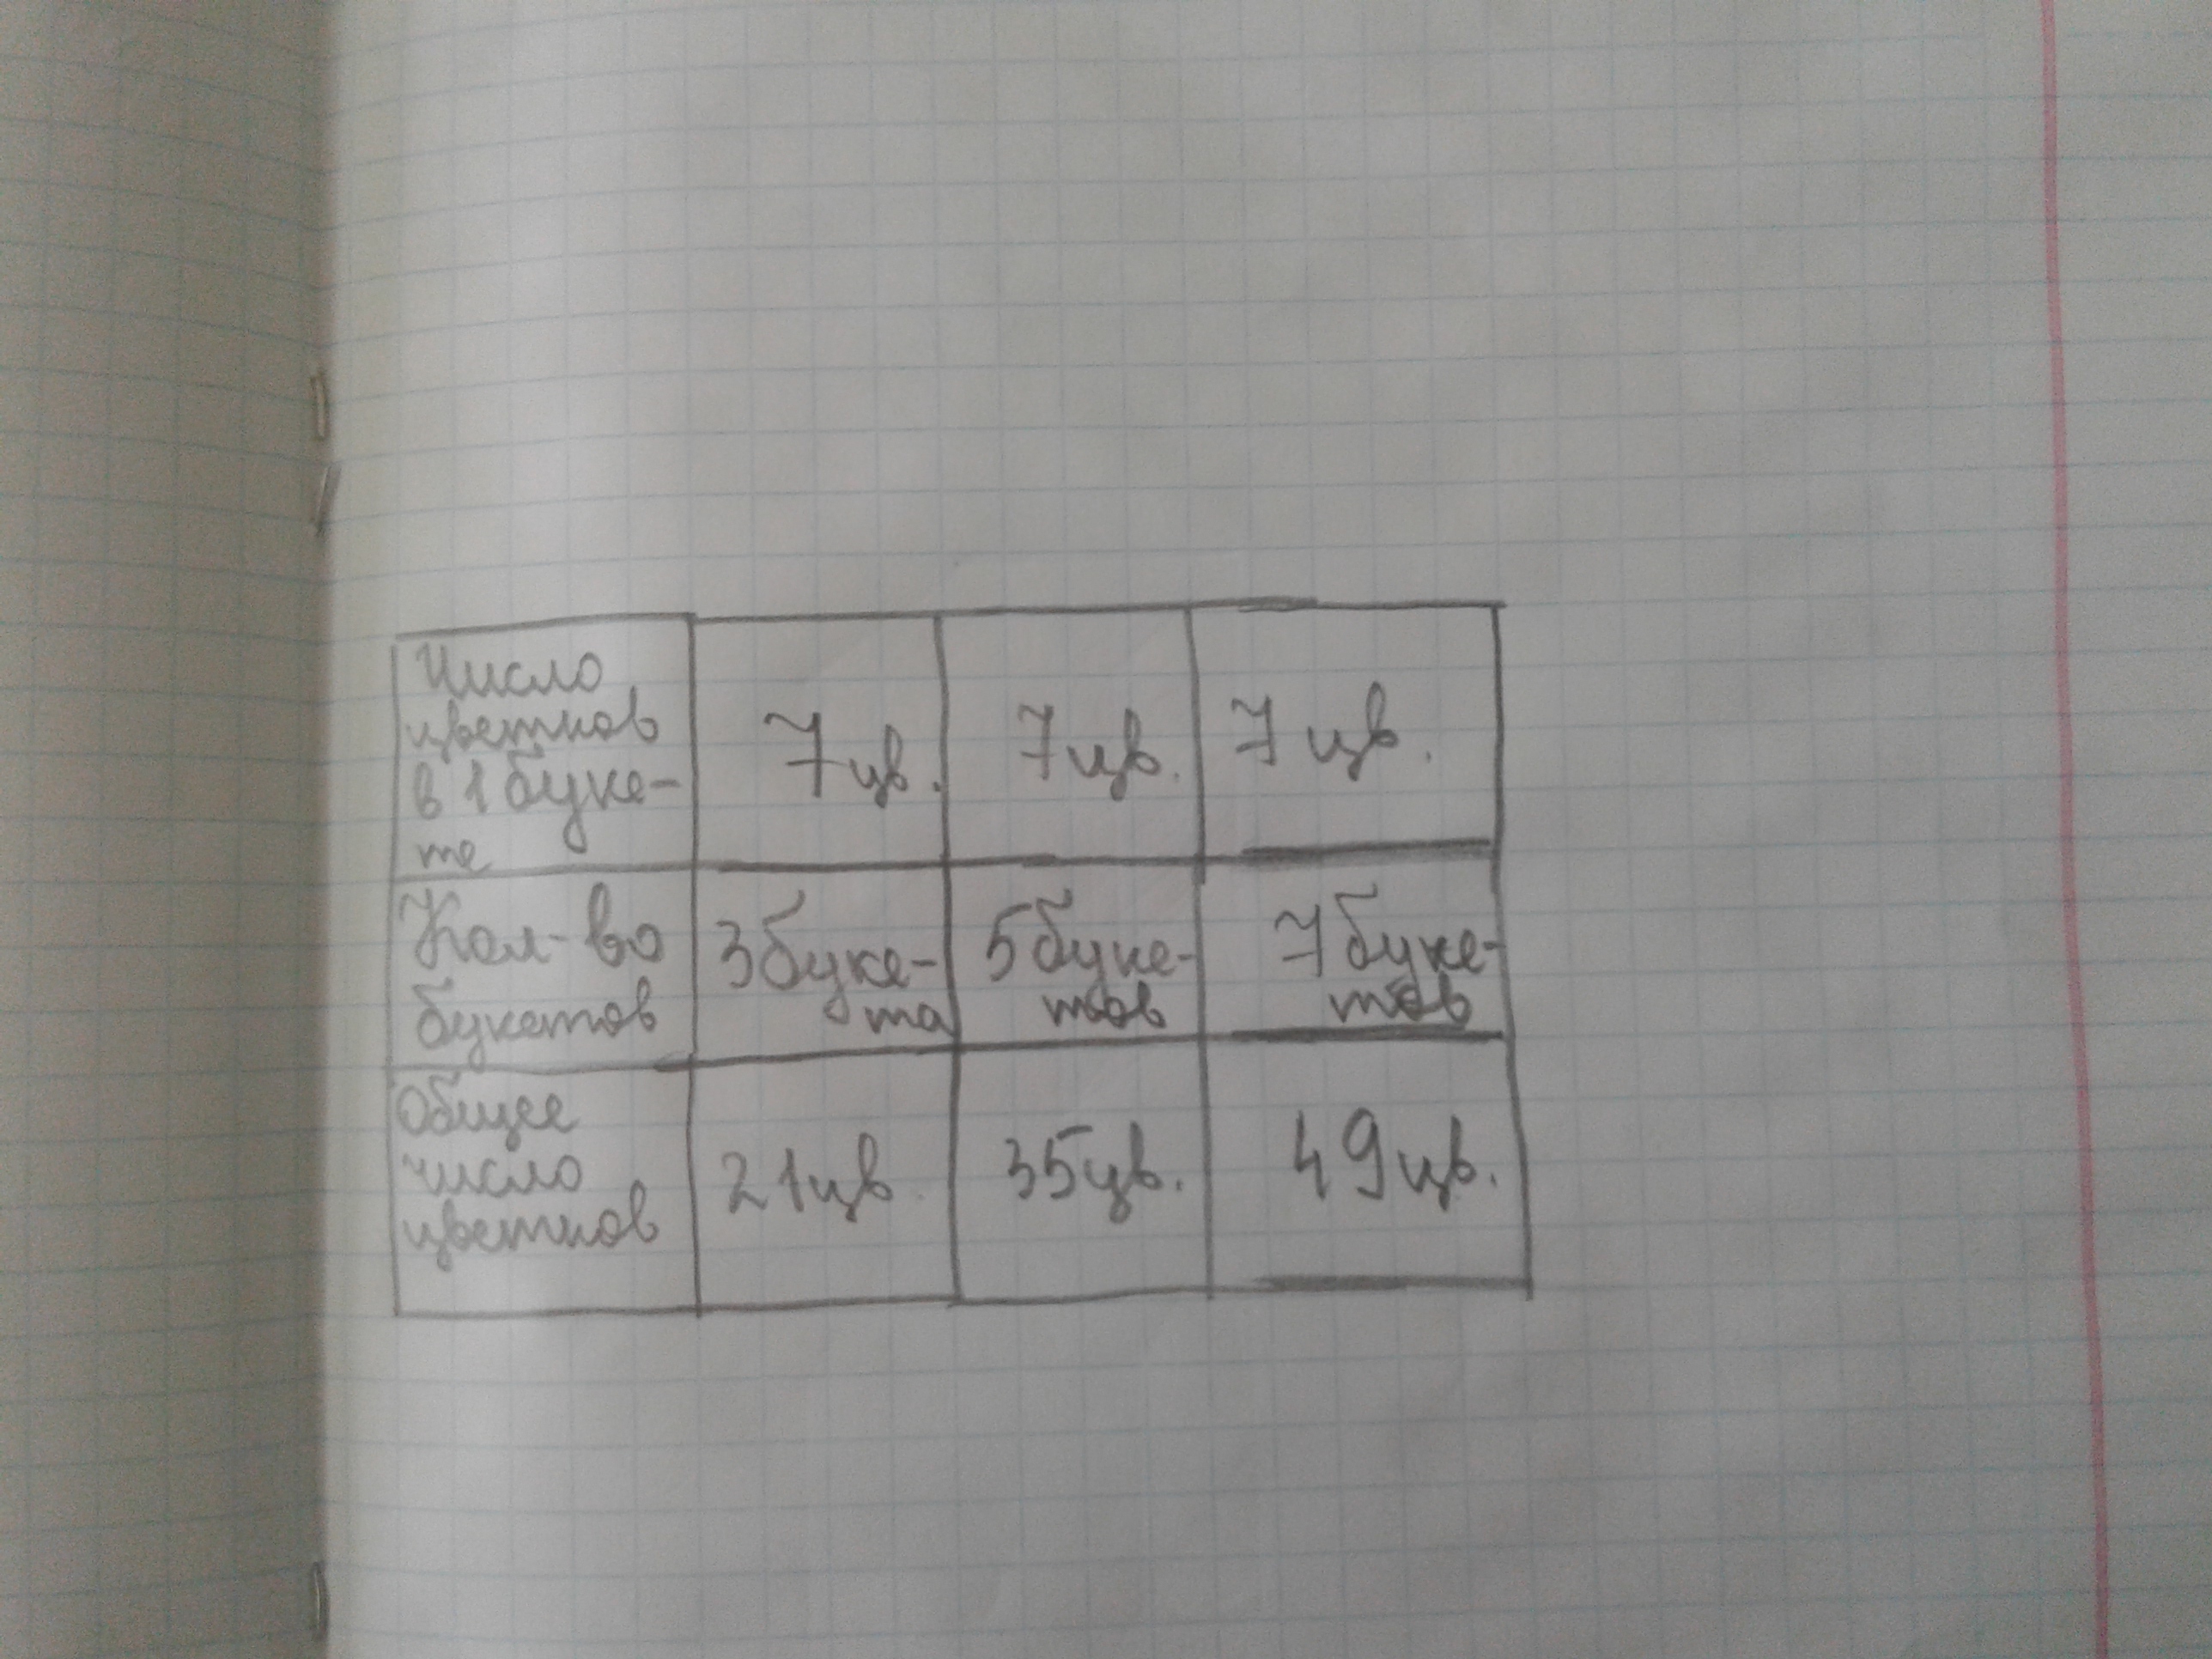 Число
цветков
в 1 буке-
те
7 цв.
7 цв.
7 цв.
Кол-во
букетов
3 буке-
та
5 буке-
тов
7 буке-
тов
Общее
число
цветков
21 цв.
35 цв.
49 цв.